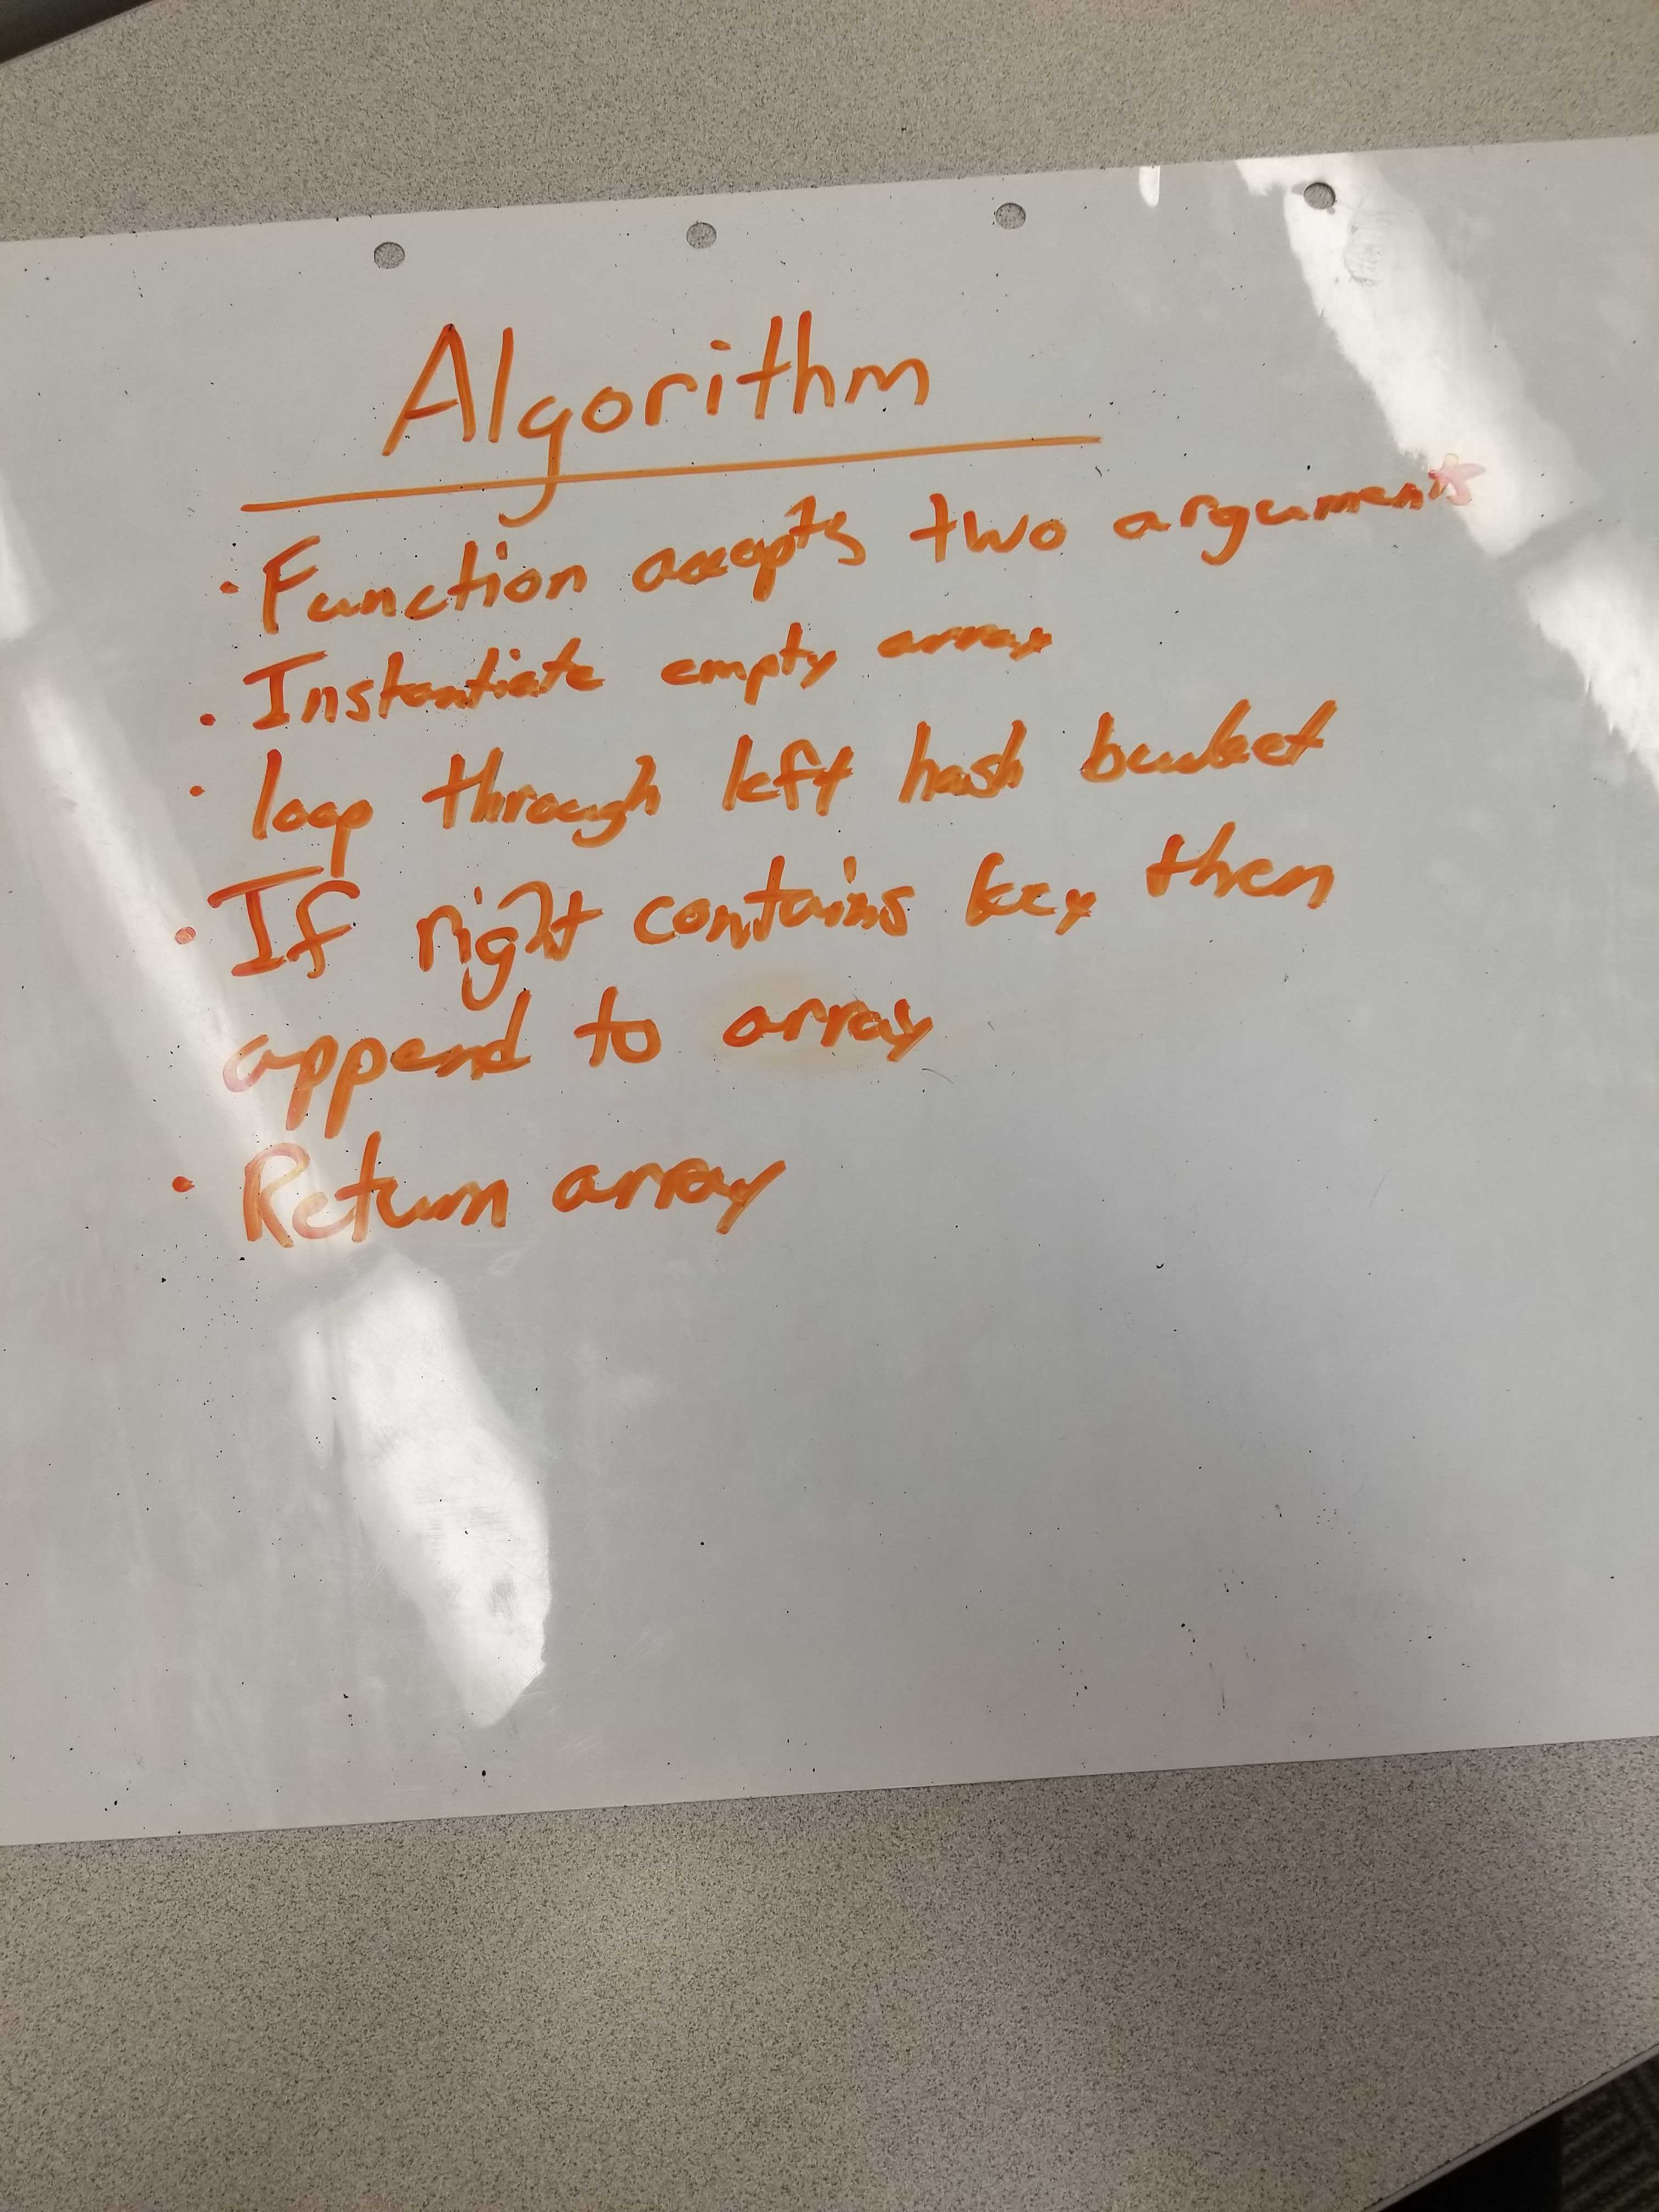 Algorithm
· Function accepts two arguments
· Instantiate empty array
· loop through left hash bucket
· If right contains key then
append to array
· Return array